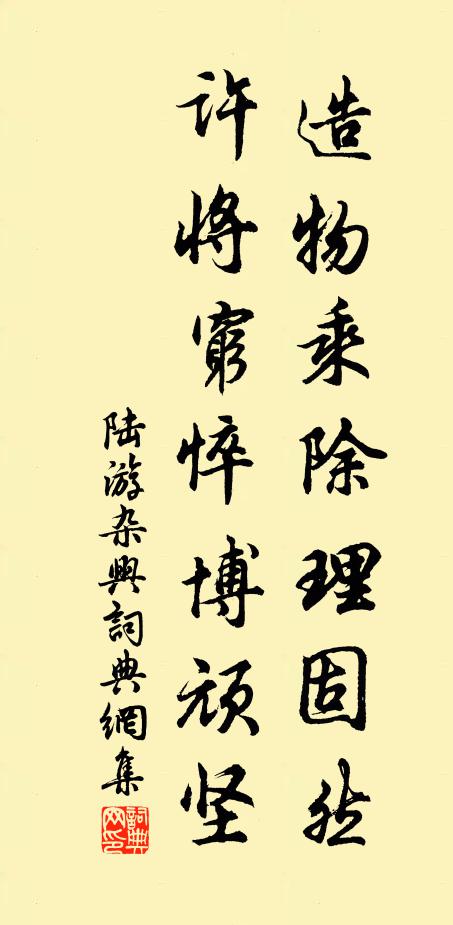 造物乘除理固然
许将穷悴博顽坚
陆游杂興詞典網集
詞典網印